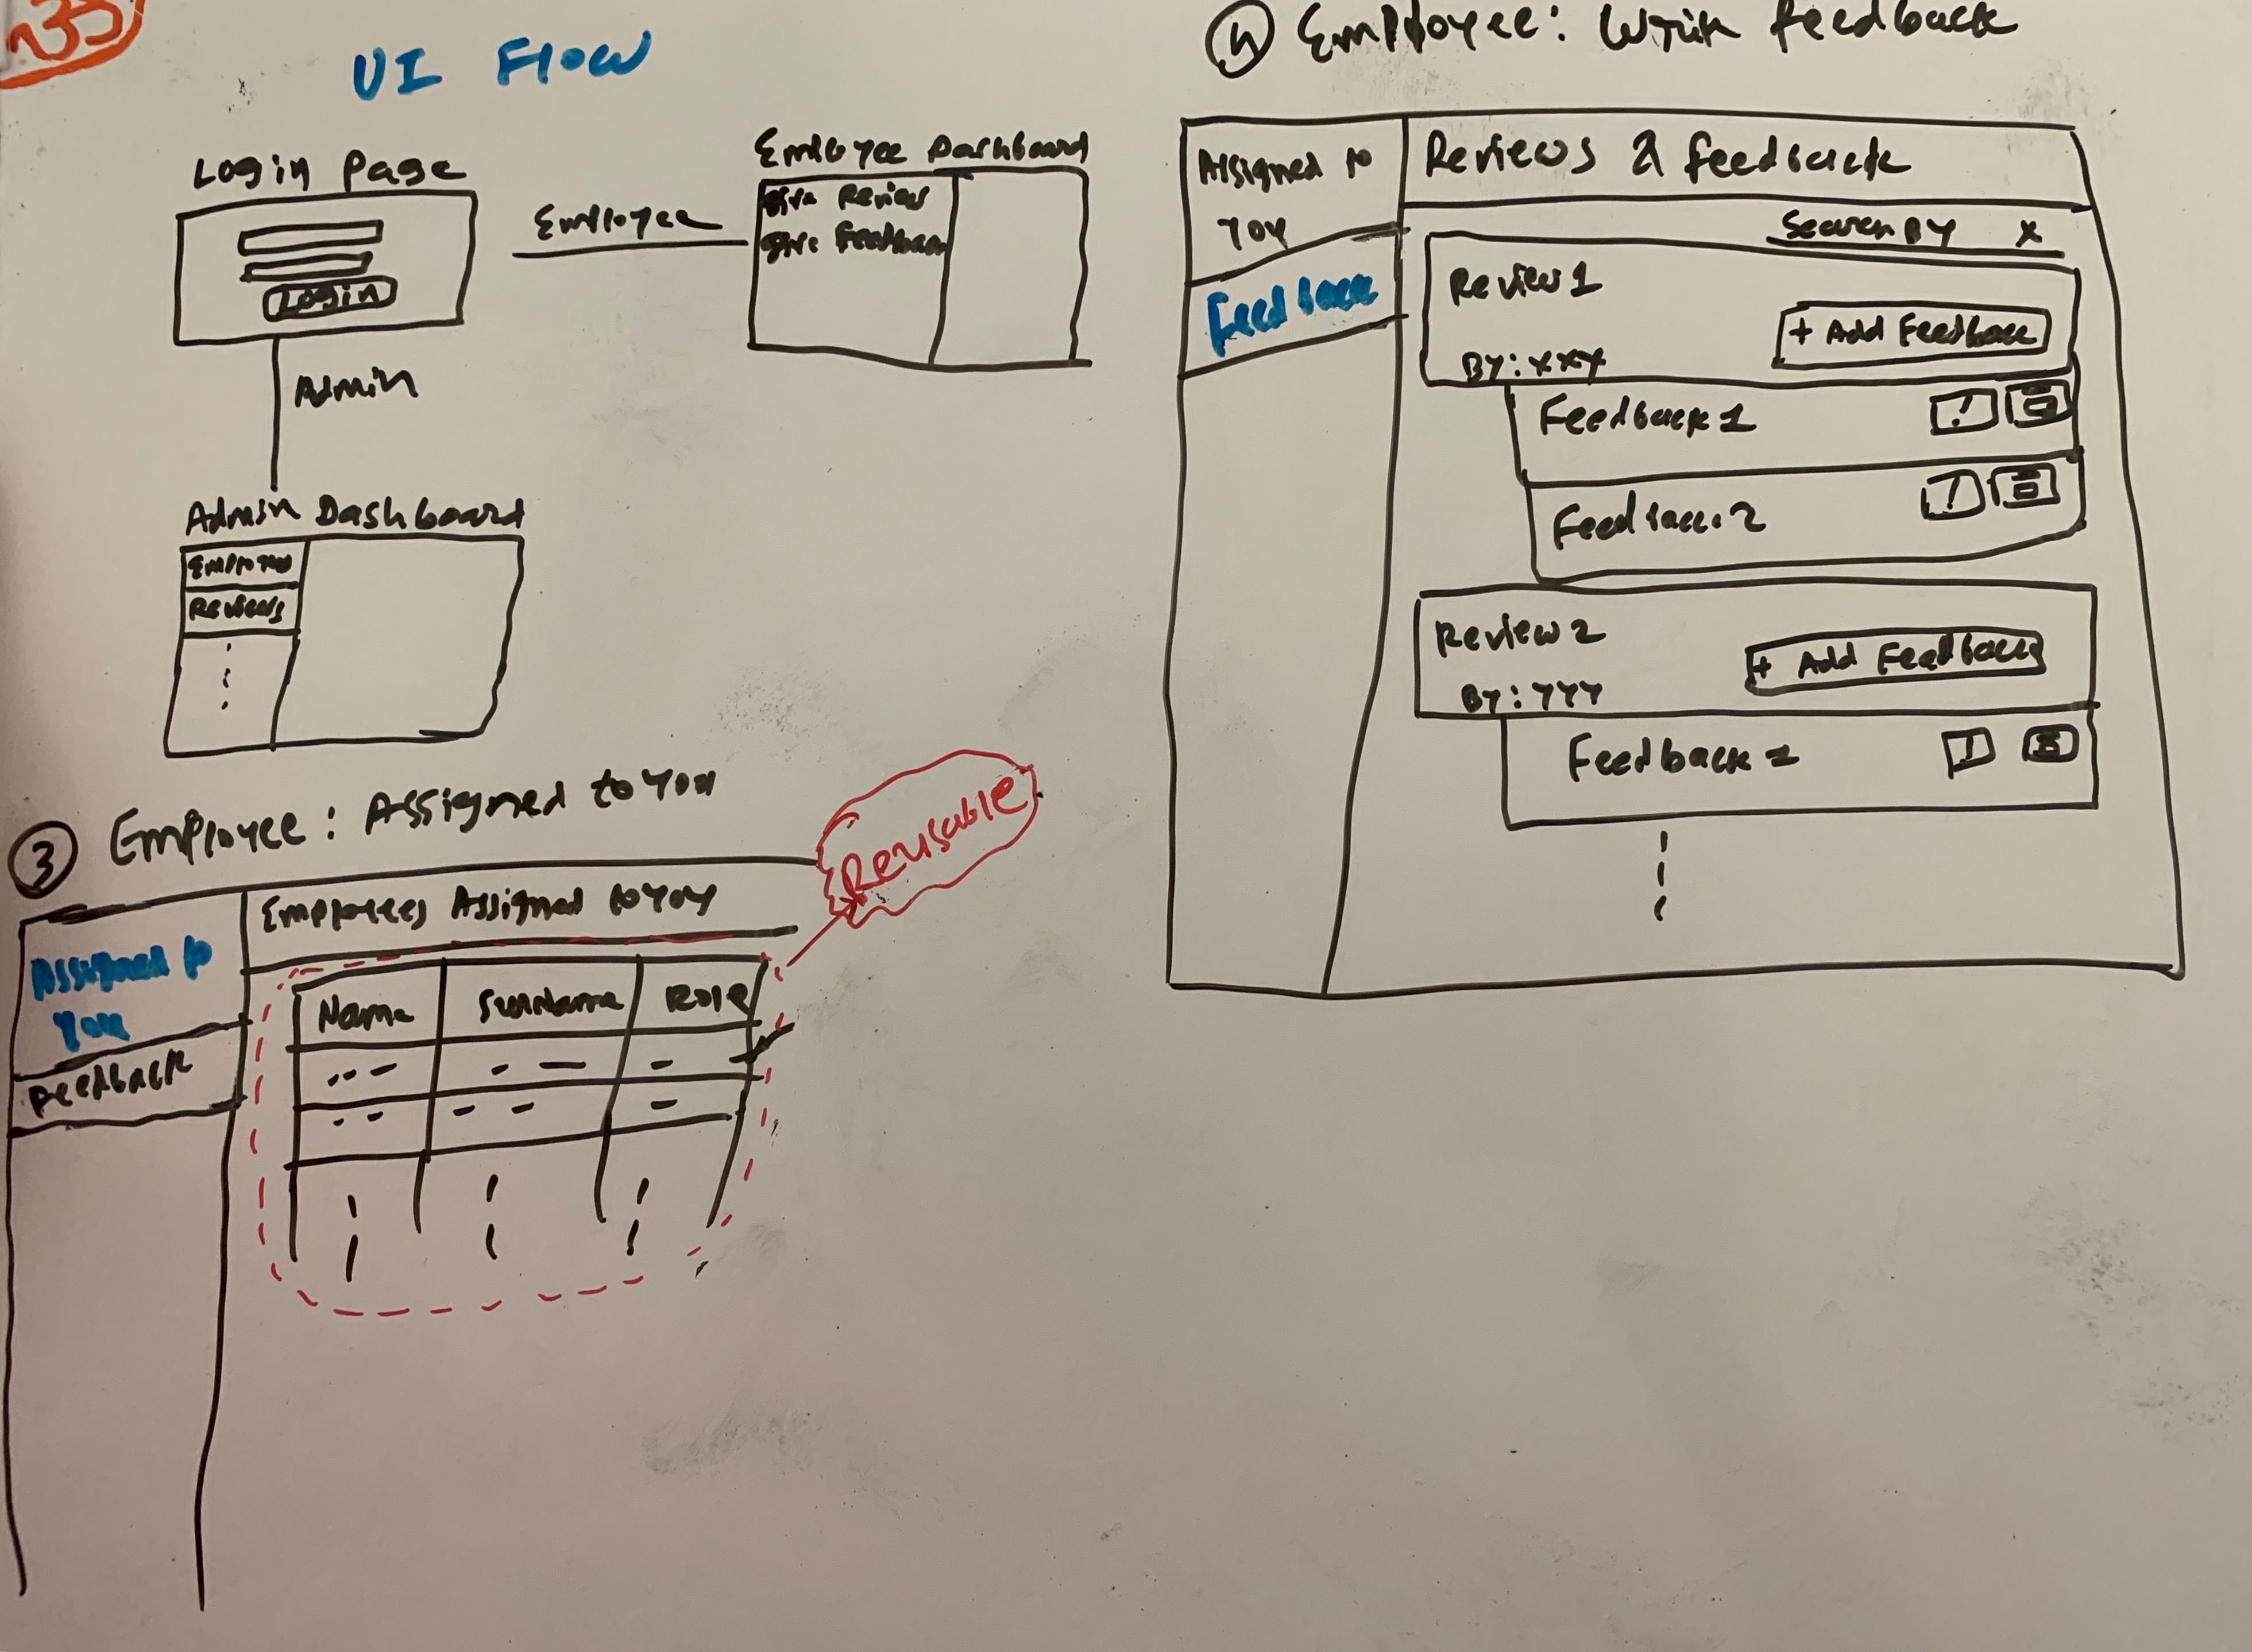 UI Flow
Login Page
Login
Employee
Employee Dashboard
Give Review
Give Feedback
Admin
Admin Dashboard
Employees
Reviews
3 Employee: Assigned to You
Employees Assigned to you
Assigned to
you
Feedback
Name Surname Role
Reusable
4 Employee: Write feedback
Assigned to
you
Feedback
Reviews & feedback
Search By x
Review 1
+ Add Feedback
By: xxx
Feedback 1
Feedback 2
Review 2
+ Add Feedback
By: YYY
Feedback 1